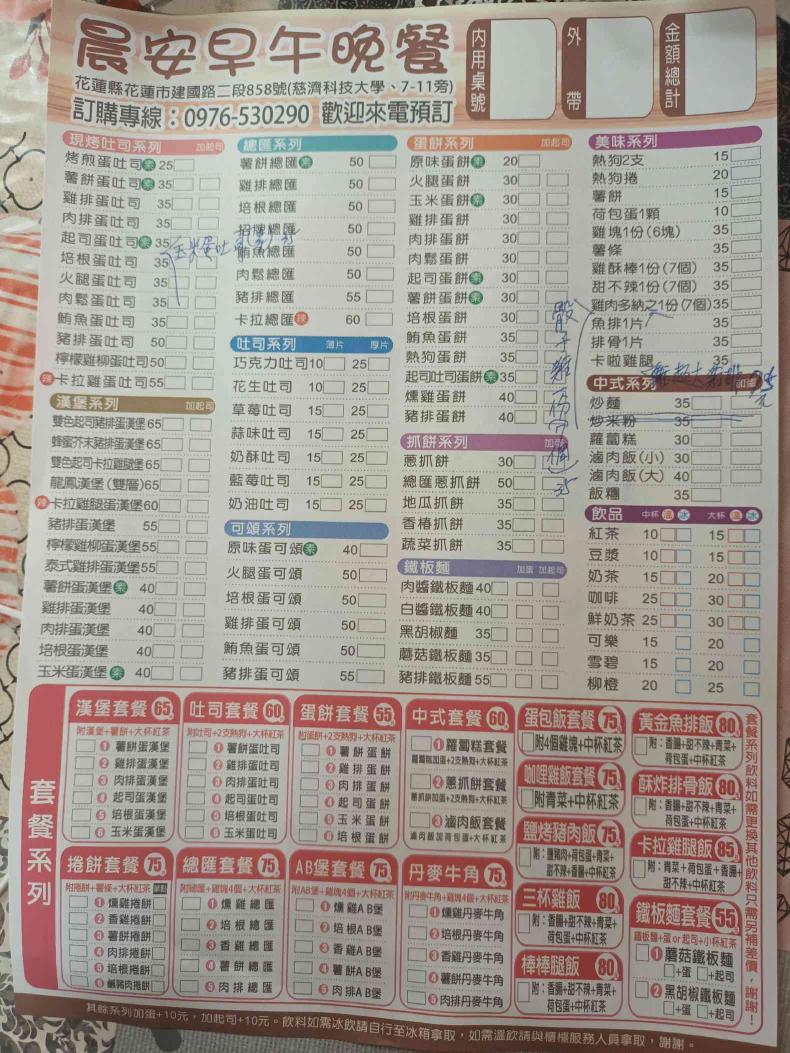 晨安早午晚餐
花蓮縣花蓮市建國路二段858號(慈濟科技大學、7-11旁)
訂購專線：0976-530290 歡迎來電預訂
內用桌號
外帶
金額總計
現烤吐司系列 加起司
烤煎蛋吐司 素 25
薯餅蛋吐司 素 35
雞排蛋吐司 35
肉排蛋吐司 35
起司蛋吐司 素 35
培根蛋吐司 35
火腿蛋吐司 35
肉鬆蛋吐司 35
鮪魚蛋吐司 35
豬排蛋吐司 50
檸檬雞柳蛋吐司 50
辣 卡拉雞蛋吐司 55
玉米蛋吐司(素) 35
漢堡系列 加起司
雙色起司豬排蛋漢堡 65
蜂蜜芥末豬排蛋漢堡 65
雙色起司卡拉雞腿堡 65
龍鳳漢堡(雙層) 65
辣 卡拉雞腿蛋漢堡 60
豬排蛋漢堡 55
檸檬雞柳蛋漢堡 55
泰式雞排蛋漢堡 55
薯餅蛋漢堡 素 40
雞排蛋漢堡 40
肉排蛋漢堡 40
培根蛋漢堡 40
玉米蛋漢堡 素 40
總匯系列
薯餅總匯 素 50
雞排總匯 50
培根總匯 50
招牌總匯 50
鮪魚總匯 50
肉鬆總匯 50
豬排總匯 55
卡拉總匯 辣 60
吐司系列 薄片 厚片
巧克力吐司 10 25
花生吐司 10 25
草莓吐司 15 25
蒜味吐司 15 25
奶酥吐司 15 25
藍莓吐司 15 25
奶油吐司 15 25
可頌系列
原味蛋可頌 素 40
火腿蛋可頌 50
培根蛋可頌 50
雞排蛋可頌 50
鮪魚蛋可頌 50
豬排蛋可頌 55
蛋餅系列 加起司
原味蛋餅 素 20
火腿蛋餅 30
玉米蛋餅 素 30
雞排蛋餅 30
肉排蛋餅 30
肉鬆蛋餅 30
起司蛋餅 素 30
薯餅蛋餅 素 30
培根蛋餅 30
鮪魚蛋餅 35
熱狗蛋餅 35
起司吐司蛋餅 素 35
燻雞蛋餅 40
豬排蛋餅 40
抓餅系列 加蛋
蔥抓餅 30
總匯蔥抓餅 50
地瓜抓餅 35
香椿抓餅 35
蔬菜抓餅 35
鐵板麵 加蛋 加起司
肉醬鐵板麵 40
白醬鐵板麵 40
黑胡椒麵 35
蘑菇鐵板麵 35
豬排鐵板麵 55
美味系列
熱狗2支 15
熱狗捲 20
薯餅 15
荷包蛋1顆 10
雞塊1份(6塊) 35
薯條 35
雞酥棒1份(7個) 35
甜不辣1份(7個) 35
雞肉多納之1份(7個) 35
魚排1片 35
排骨1片 35
卡啦雞腿 35
骰子雞
中式系列 加蛋
炒麵 35
炒米粉 35
蘿蔔糕 30
滷肉飯(小) 30
滷肉飯(大) 40
飯糰 35
飲品 中杯 溫 冰 大杯 溫 冰
紅茶 10 15
豆漿 10 15
奶茶 15 20
咖啡 25 30
鮮奶茶 25 30
可樂 15 20
雪碧 15 20
柳橙 20 25
套餐系列
漢堡套餐 65元
附漢堡+薯餅+大杯紅茶
1 薯餅蛋漢堡
2 雞排蛋漢堡
3 肉排蛋漢堡
4 起司蛋漢堡
5 培根蛋漢堡
6 玉米蛋漢堡
吐司套餐 60元
附吐司+2支熱狗+大杯紅茶
1 薯餅蛋吐司
2 雞排蛋吐司
3 肉排蛋吐司
4 起司蛋吐司
5 培根蛋吐司
6 玉米蛋吐司
蛋餅套餐 55元
附蛋餅+2支熱狗+大杯紅茶
1 薯餅蛋餅
2 雞排蛋餅
3 肉排蛋餅
4 起司蛋餅
5 玉米蛋餅
6 培根蛋餅
中式套餐 60元
1 蘿蔔糕套餐
蘿蔔糕加蛋+2支熱狗+大杯紅茶
2 蔥抓餅套餐
蔥抓餅加蛋+2支熱狗+大杯紅茶
3 滷肉飯套餐
滷肉飯加荷包蛋+大杯紅茶
捲餅套餐 75元
附捲餅+薯條+大杯紅茶 單點
1 燻雞捲餅
2 香雞捲餅
3 薯餅捲餅
4 肉排捲餅
5 培根捲餅
6 鹹豬肉捲餅
總匯套餐 75元
附總匯+雞塊4個+大杯紅茶
1 燻雞總匯
2 培根總匯
3 香雞總匯
4 薯餅總匯
5 肉排總匯
AB堡套餐 75元
附AB堡+雞塊4個+大杯紅茶
1 燻雞AB堡
2 培根AB堡
3 香雞AB堡
4 薯餅AB堡
5 肉排AB堡
丹麥牛角 75元
附丹麥牛角+雞塊4個+大杯紅茶
1 燻雞丹麥牛角
2 培根丹麥牛角
3 香雞丹麥牛角
4 薯餅丹麥牛角
5 肉排丹麥牛角
蛋包飯套餐 75元
附4個雞塊+中杯紅茶
咖哩雞飯套餐 75元
附青菜+中杯紅茶
鹽烤豬肉飯 75元
附：鹽豬肉+荷包蛋+青菜+
甜不辣+香腸+中杯紅茶
三杯雞飯 80元
附：香腸+甜不辣+青菜+
荷包蛋+中杯紅茶
棒棒腿飯 80元
附：香腸+甜不辣+青菜+
荷包蛋+中杯紅茶
黃金魚排飯 80元
附：香腸+甜不辣+青菜+
荷包蛋+中杯紅茶
酥炸排骨飯 80元
附：香腸+甜不辣+青菜+
荷包蛋+中杯紅茶
卡拉雞腿飯 85元
附：青菜+荷包蛋+香腸+
甜不辣+中杯紅茶
鐵板麵套餐 55元
鐵板麵+蛋 or 起司+小杯紅茶
1 蘑菇鐵板麵
+蛋 +起司
2 黑胡椒鐵板麵
+蛋 +起司
套餐系列飲料如需更換其他飲料只需另補差價，謝謝！
其餘系列加蛋+10元，加起司+10元。飲料如需冰飲請自行至冰箱拿取，如需溫飲請與櫃檯服務人員拿取，謝謝。